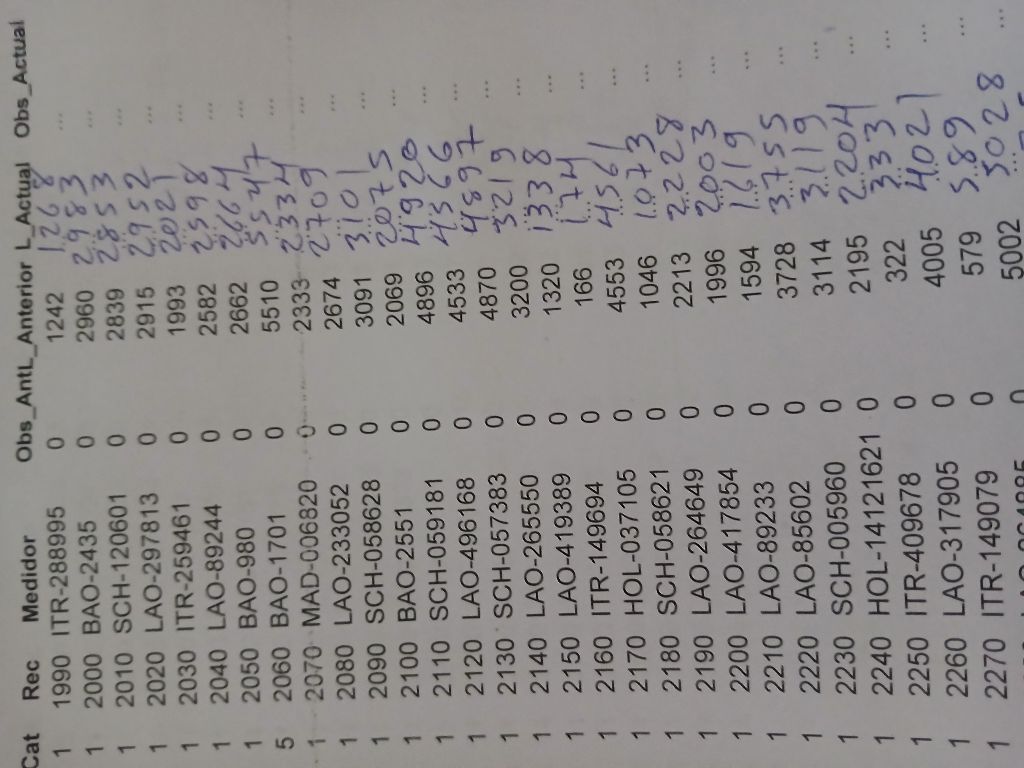 Cat Rec Medidor Obs_AntL_Anterior L_Actual Obs_Actual
1 1990 ITR-288995 0 1242 1268 ...
1 2000 BAO-2435 0 2960 2983 ...
1 2010 SCH-120601 0 2839 2853 ...
1 2020 LAO-297813 0 2915 2952 ...
1 2030 ITR-259461 0 1993 2021 ...
1 2040 LAO-89244 0 2582 2598 ...
1 2050 BAO-980 0 2662 2664 ...
5 2060 BAO-1701 0 5510 5547 ...
1 2070 MAD-006820 0 2333 2334 ...
1 2080 LAO-233052 0 2674 2709 ...
1 2090 SCH-058628 0 3091 3101 ...
1 2100 BAO-2551 0 2069 2075 ...
1 2110 SCH-059181 0 4896 4920 ...
1 2120 LAO-496168 0 4533 4566 ...
1 2130 SCH-057383 0 4870 4897 ...
1 2140 LAO-265550 0 3200 3219 ...
1 2150 LAO-419389 0 1320 1338 ...
1 2160 ITR-149694 0 166 174 ...
1 2170 HOL-037105 0 4553 4561 ...
1 2180 SCH-058621 0 1046 1073 ...
1 2190 LAO-264649 0 2213 2228 ...
1 2200 LAO-417854 0 1996 2003 ...
1 2210 LAO-89233 0 1594 ...
1 2220 LAO-85602 0 3728 3755 ...
1 2230 SCH-005960 0 3114 3119 ...
1 2240 HOL-141221621 0 2195 2204 ...
1 2250 ITR-409678 0 322 333 ...
1 2260 LAO-317905 0 4005 4021 ...
1 2270 ITR-149079 0 579 589 ...
0 5002 5028 ...